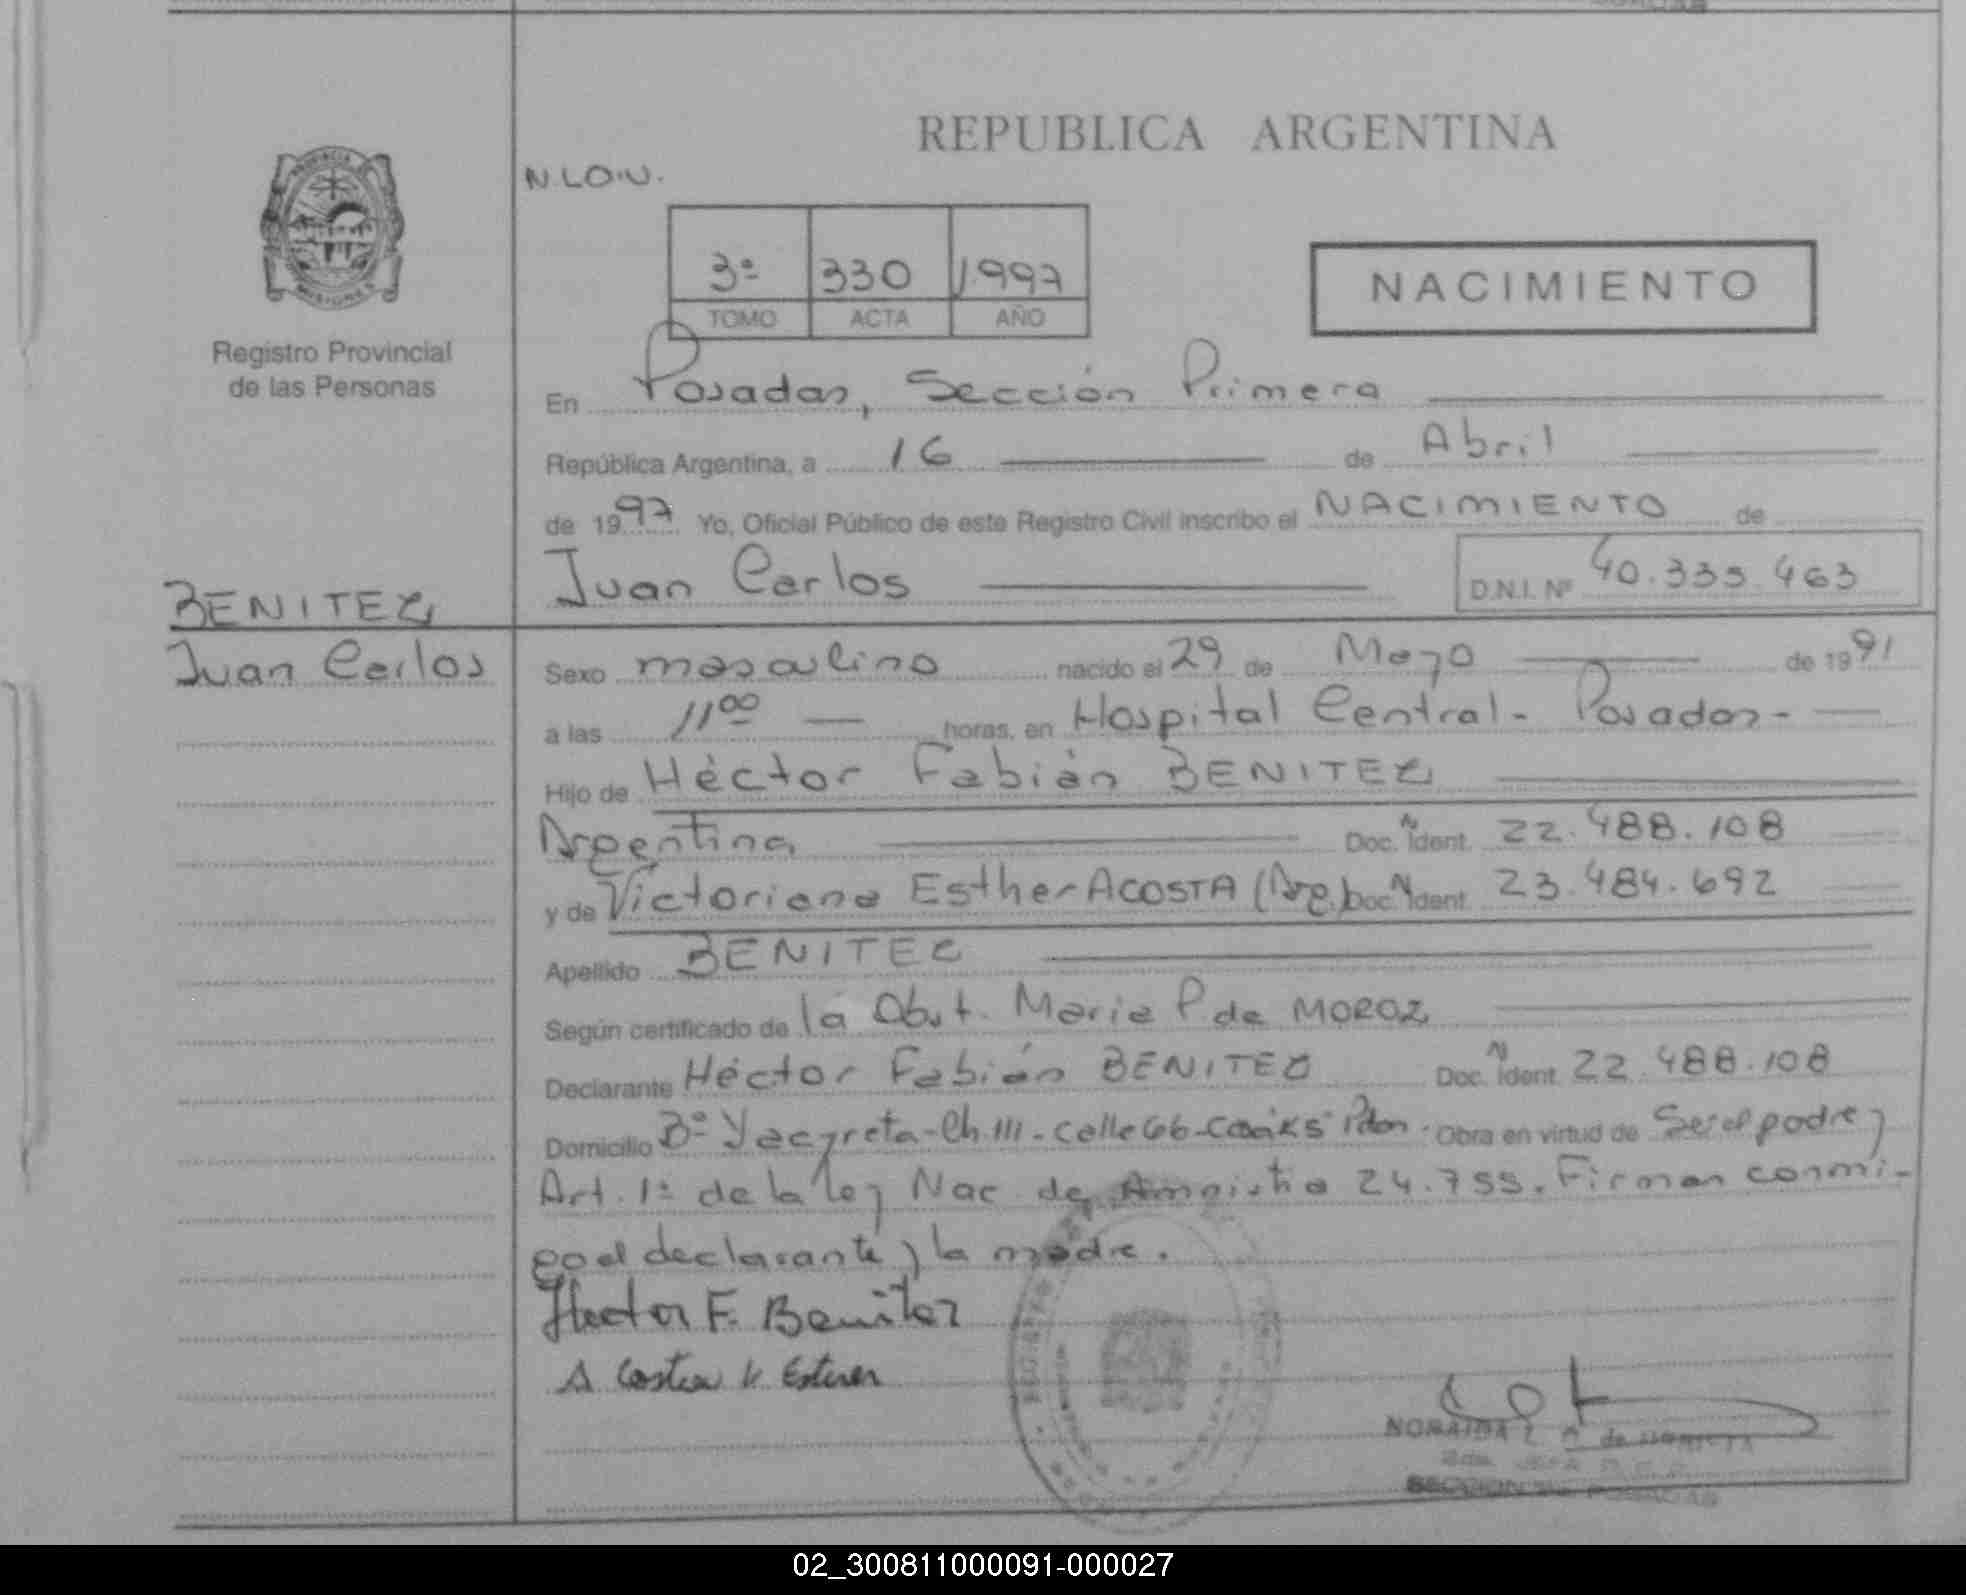 REPUBLICA ARGENTINA
PROVINCIA
MISIONES
Registro Provincial
de las Personas
N.L.O.U.
3º 330 1.997
TOMO ACTA AÑO
NACIMIENTO
En Posadas, Sección Primera
República Argentina, a 16 de Abril
de 1997 Yo, Oficial Público de este Registro Civil inscribo el NACIMIENTO de
Juan Carlos D.N.I. Nº 40.335.463
BENITEZ
Juan Carlos
Sexo masculino nacido el 29 de Mayo de 1991
a las 11 00 horas, en Hospital Central - Posadas -
Hijo de Héctor Fabián BENITEZ
Argentina Doc. N Ident. 22.488.108
y de Victoriana Esther ACOSTA (Arg.) Doc. N Ident. 23.484.692
Apellido BENITEZ
Según certificado de la Obst. Maria P. de MOROZ
Declarante Héctor Fabián BENITEZ Doc. N Ident. 22.488.108
Domicilio Bº Yacyreta - Ch. 111 - calle 66 - Obra en virtud de Ser el padre y
Art. 1º de la ley Nac. de Amnistia 24.755. Firman conmi-
go el declarante y la madre.
Hector F. Benitez
A Costa V. Ester
NORAIDA
SECCION